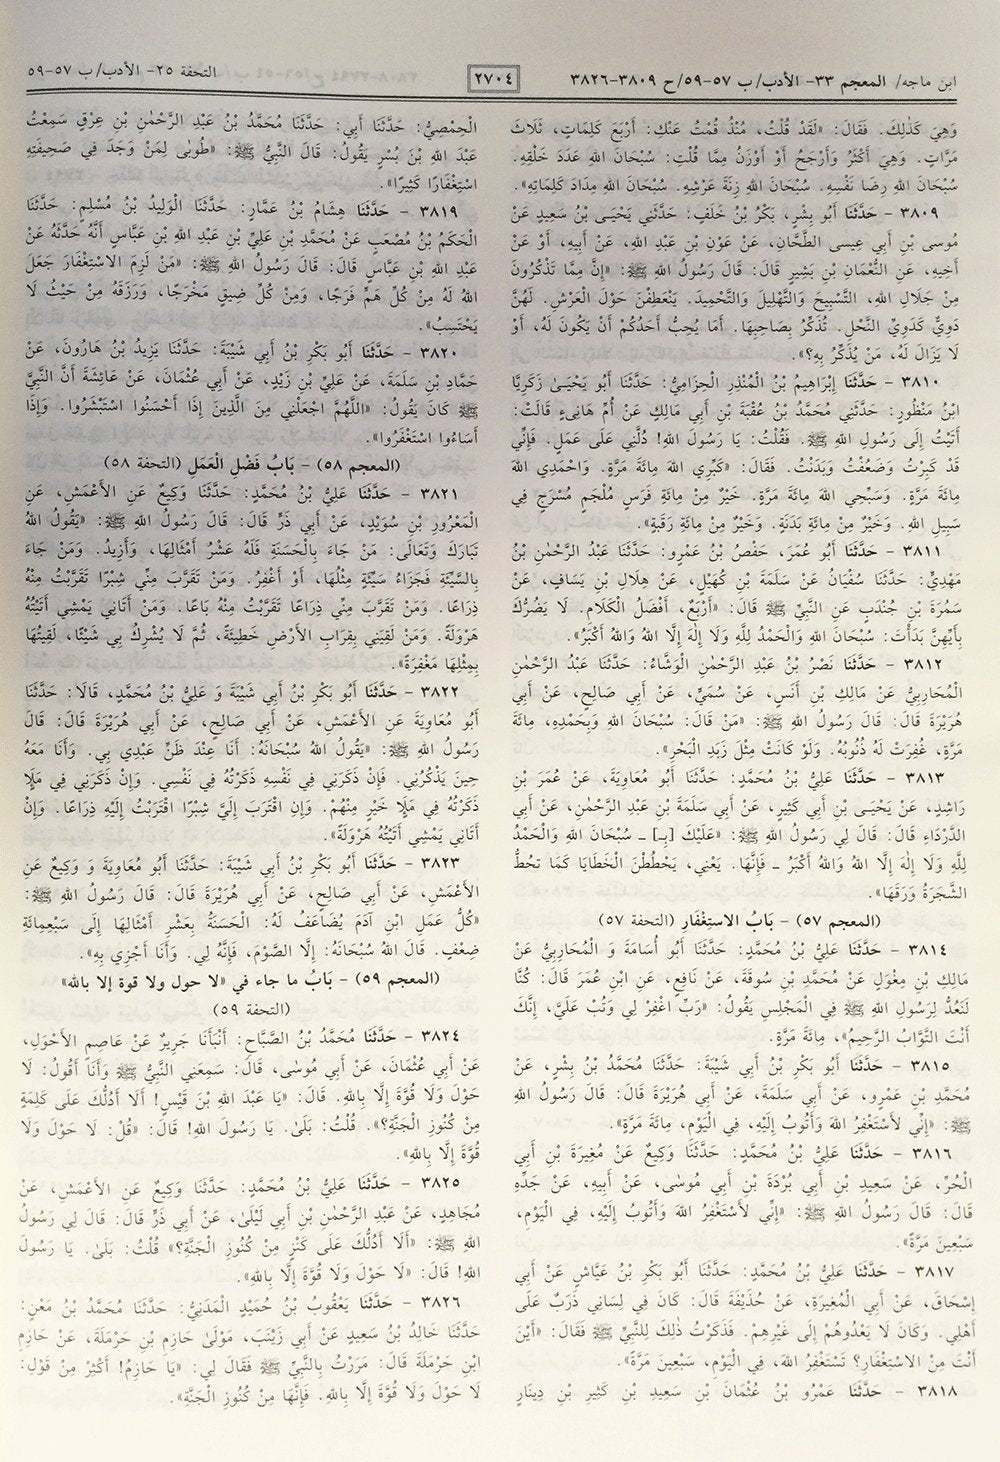 ابن ماجه/ المعجم ٣٣- الأدب/ ب ٥٧-٥٩/ح ٣٨٠٩-٣٨٢٦
٢٧٠٤
التحفة ٢٥- الأدب/ ب ٥٧-٥٩
وَهِيَ كَذٰلِكَ. فَقَالَ: «لَقَدْ قُلْتُ، مُنْذُ قُمْتُ عَنْكِ: أَرْبَعَ كَلِمَاتٍ، ثَلَاثَ
مَرَّاتٍ. وَهِيَ أَكْثَرُ وَأَرْجَحُ أَوْ أَوْزَنُ مِمَّا قُلْتِ: سُبْحَانَ اللهِ عَدَدَ خَلْقِهِ.
سُبْحَانَ اللهِ رِضَا نَفْسِهِ. سُبْحَانَ اللهِ زِنَةَ عَرْشِهِ. سُبْحَانَ اللهِ مِدَادَ كَلِمَاتِهِ».
٣٨٠٩ - حَدَّثَنَا أَبُو بِشْرٍ، بَكْرُ بْنُ خَلَفٍ: حَدَّثَنِي يَحْيَـى بْنُ سَعِيدٍ عَنْ
مُوسى بْنِ أَبِي عِيسى الطَّحَّانِ، عَنْ عَوْنِ بْنِ عَبْدِ اللهِ، عَنْ أَبِيهِ، أَوْ عَنْ
أَخِيهِ، عَنِ النُّعْمَانِ بْنِ بَشِيرٍ قَالَ: قَالَ رَسُولُ اللهِ ﷺ: «إِنَّ مِمَّا تَذْكُرُونَ
مِنْ جَلَالِ اللهِ، التَّسْبِيحَ وَالتَّهْلِيلَ وَالتَّحْمِيدَ. يَنْعَطِفْنَ حَوْلَ الْعَرْشِ. لَهُنَّ
دَوِيٌّ كَدَوِيِّ النَّحْلِ. تُذَكِّرُ بِصَاحِبِهَا. أَمَا يُحِبُّ أَحَدُكُمْ أَنْ يَكُونَ لَهُ، أَوْ
لَا يَزَالَ لَهُ، مَنْ يُذَكِّرُ بِهِ؟».
٣٨١٠ - حَدَّثَنَا إِبْرَاهِيمُ بْنُ الْمُنْذِرِ الْحِزَامِيُّ: حَدَّثَنَا أَبُو يَحْيَـىٰ زَكَرِيَّا
ابْنُ مَنْظُورٍ: حَدَّثَنِي مُحَمَّدُ بْنُ عُقْبَةَ بْنِ أَبِي مَالِكٍ عَنْ أُمِّ هَانِىءٍ قَالَتْ:
أَتَيْتُ إِلَى رَسُولِ اللهِ ﷺ. فَقُلْتُ: يَا رَسُولَ اللهِ! دُلَّنِي عَلَى عَمَلٍ. فَإِنِّي
قَدْ كَبِرْتُ وَضَعُفْتُ وَبَدُنْتُ. فَقَالَ: «كَبِّرِي اللهَ مِائَةَ مَرَّةٍ. وَاحْمَدِي اللهَ
مِائَةَ مَرَّةٍ. وَسَبِّحِي اللهَ مِائَةَ مَرَّةٍ. خَيْرٌ مِنْ مِائَةِ فَرَسٍ مُلْجَمٍ مُسْرَجٍ فِي
سَبِيلِ اللهِ. وَخَيْرٌ مِنْ مِائَةِ بَدَنَةٍ. وَخَيْرٌ مِنْ مِائَةِ رَقَبَةٍ».
٣٨١١ - حَدَّثَنَا أَبُو عُمَرَ، حَفْصُ بْنُ عَمْرٍو: حَدَّثَنَا عَبْدُ الرَّحْمٰنِ بْنُ
مَهْدِيٍّ: حَدَّثَنَا سُفْيَانُ عَنْ سَلَمَةَ بْنِ كُهَيْلٍ، عَنْ هِلَالِ بْنِ يَسَافٍ، عَنْ
سَمُرَةَ بْنِ جُنْدَبٍ عَنِ النَّبِيِّ ﷺ قَالَ: «أَرْبَعٌ، أَفْضَلُ الْكَلَامِ. لَا يَضُرُّكَ
بِأَيِّهِنَّ بَدَأْتَ: سُبْحَانَ اللهِ وَالْحَمْدُ لِلَّهِ وَلَا إِلٰهَ إِلَّا اللهُ وَاللهُ أَكْبَرُ».
٣٨١٢ - حَدَّثَنَا نَصْرُ بْنُ عَبْدِ الرَّحْمٰنِ الْوَشَّاءُ: حَدَّثَنَا عَبْدُ الرَّحْمٰنِ
الْمُحَارِبِيُّ عَنْ مَالِكِ بْنِ أَنَسٍ، عَنْ سُمَيٍّ، عَنْ أَبِي صَالِحٍ، عَنْ أَبِي
هُرَيْرَةَ قَالَ: قَالَ رَسُولُ اللهِ ﷺ: «مَنْ قَالَ: سُبْحَانَ اللهِ وَبِحَمْدِهِ، مِائَةَ
مَرَّةٍ، غُفِرَتْ لَهُ ذُنُوبُهُ. وَلَوْ كَانَتْ مِثْلَ زَبَدِ الْبَحْرِ».
٣٨١٣ - حَدَّثَنَا عَلِيُّ بْنُ مُحَمَّدٍ: حَدَّثَنَا أَبُو مُعَاوِيَةَ، عَنْ عُمَرَ بْنِ
رَاشِدٍ، عَنْ يَحْيَـى بْنِ أَبِي كَثِيرٍ، عَنْ أَبِي سَلَمَةَ بْنِ عَبْدِ الرَّحْمٰنِ، عَنْ أَبِي
الدَّرْدَاءِ قَالَ: قَالَ لِي رَسُولُ اللهِ ﷺ: «عَلَيْكَ [بِـ] ـ سُبْحَانَ اللهِ وَالْحَمْدُ
لِلَّهِ وَلَا إِلٰهَ إِلَّا اللهُ وَاللهُ أَكْبَرُ ـ فَإِنَّهَا. يَعْنِي، يَحْطُطْنَ الْخَطَايَا كَمَا تَحُطُّ
الشَّجَرَةُ وَرَقَهَا».
(المعجم ٥٧) - بَابُ الاستِغْفَارِ (التحفة ٥٧)
٣٨١٤ - حَدَّثَنَا عَلِيُّ بْنُ مُحَمَّدٍ: حَدَّثَنَا أَبُو أُسَامَةَ وَ الْمُحَارِبِيُّ عَنْ
مَالِكِ بْنِ مِغْوَلٍ عَنْ مُحَمَّدِ بْنِ سُوقَةَ، عَنْ نَافِعٍ، عَنِ ابْنِ عُمَرَ قَالَ: كُنَّا
لَنَعُدُّ لِرَسُولِ اللهِ ﷺ فِي الْمَجْلِسِ يَقُولُ: «رَبِّ اغْفِرْ لِي وَتُبْ عَلَيَّ، إِنَّكَ
أَنْتَ التَّوَّابُ الرَّحِيمُ»، مِائَةَ مَرَّةٍ.
٣٨١٥ - حَدَّثَنَا أَبُو بَكْرِ بْنُ أَبِي شَيْبَةَ: حَدَّثَنَا مُحَمَّدُ بْنُ بِشْرٍ، عَنْ
مُحَمَّدِ بْنِ عَمْرٍو، عَنْ أَبِي سَلَمَةَ، عَنْ أَبِي هُرَيْرَةَ قَالَ: قَالَ رَسُولُ اللهِ
ﷺ: «إِنِّي لأَسْتَغْفِرُ اللهَ وَأَتُوبُ إِلَيْهِ، فِي الْيَوْمِ، مِائَةَ مَرَّةٍ».
٣٨١٦ - حَدَّثَنَا عَلِيُّ بْنُ مُحَمَّدٍ: حَدَّثَنَا وَكِيعٌ عَنْ مُغِيرَةَ بْنِ أَبِي
الْحُرِّ، عَنْ سَعِيدِ بْنِ أَبِي بُرْدَةَ بْنِ أَبِي مُوسٰى، عَنْ أَبِيهِ، عَنْ جَدِّهِ
قَالَ: قَالَ رَسُولُ اللهِ ﷺ: «إِنِّي لأَسْتَغْفِرُ اللهَ وَأَتُوبُ إِلَيْهِ، فِي الْيَوْمِ،
سَبْعِينَ مَرَّةً».
٣٨١٧ - حَدَّثَنَا عَلِيُّ بْنُ مُحَمَّدٍ: حَدَّثَنَا أَبُو بَكْرِ بْنُ عَيَّاشٍ عَنْ أَبِي
إِسْحَاقَ، عَنْ أَبِي الْمُغِيرَةِ، عَنْ حُذَيْفَةَ قَالَ: كَانَ فِي لِسَانِي ذَرَبٌ عَلَى
أَهْلِي. وَكَانَ لَا يَعْدُوهُمْ إِلَى غَيْرِهِمْ. فَذَكَرْتُ ذٰلِكَ لِلنَّبِيِّ ﷺ فَقَالَ: «أَيْنَ
أَنْتَ مِنْ الاسْتِغْفَارِ؟ تَسْتَغْفِرُ اللهَ، فِي الْيَوْمِ، سَبْعِينَ مَرَّةً».
٣٨١٨ - حَدَّثَنَا عَمْرُو بْنُ عُثْمَانَ بْنِ سَعِيدِ بْنِ كَثِيرِ بْنِ دِينَارٍ
الْحِمْصِيُّ: حَدَّثَنَا أَبِي: حَدَّثَنَا مُحَمَّدُ بْنُ عَبْدِ الرَّحْمٰنِ بْنِ عِرْقٍ سَمِعْتُ
عَبْدَ اللهِ بْنَ بُسْرٍ يَقُولُ: قَالَ النَّبِيُّ ﷺ: «طُوبٰى لِمَنْ وَجَدَ فِي صَحِيفَتِهِ
اسْتِغْفَارًا كَثِيرًا».
٣٨١٩ - حَدَّثَنَا هِشَامُ بْنُ عَمَّارٍ: حَدَّثَنَا الْوَلِيدُ بْنُ مُسْلِمٍ: حَدَّثَنَا
الْحَكَمُ بْنُ مُصْعَبٍ عَنْ مُحَمَّدِ بْنِ عَلِيِّ بْنِ عَبْدِ اللهِ بْنِ عَبَّاسٍ أَنَّهُ حَدَّثَهُ عَنْ
عَبْدِ اللهِ بْنِ عَبَّاسٍ قَالَ: قَالَ رَسُولُ اللهِ ﷺ: «مَنْ لَزِمَ الاسْتِغْفَارَ جَعَلَ
اللهُ لَهُ مِنْ كُلِّ هَمٍّ فَرَجًا، وَمِنْ كُلِّ ضِيقٍ مَخْرَجًا، وَرَزَقَهُ مِنْ حَيْثُ لَا
يَحْتَسِبُ».
٣٨٢٠ - حَدَّثَنَا أَبُو بَكْرِ بْنُ أَبِي شَيْبَةَ: حَدَّثَنَا يَزِيدُ بْنُ هَارُونَ، عَنْ
حَمَّادِ بْنِ سَلَمَةَ، عَنْ عَلِيِّ بْنِ زَيْدٍ، عَنْ أَبِي عُثْمَانَ، عَنْ عَائِشَةَ أَنَّ النَّبِيَّ
ﷺ كَانَ يَقُولُ: «اللَّهُمَّ اجْعَلْنِي مِنَ الَّذِينَ إِذَا أَحْسَنُوا اسْتَبْشَرُوا. وَإِذَا
أَسَاءُوا اسْتَغْفَرُوا».
(المعجم ٥٨) - بَابُ فَضْلِ الْعَمَلِ (التحفة ٥٨)
٣٨٢١ - حَدَّثَنَا عَلِيُّ بْنُ مُحَمَّدٍ: حَدَّثَنَا وَكِيعٌ عَنِ الأَعْمَشِ، عَنِ
الْمَعْرُورِ بْنِ سُوَيْدٍ، عَنْ أَبِي ذَرٍّ قَالَ: قَالَ رَسُولُ اللهِ ﷺ: «يَقُولُ اللهُ
تَبَارَكَ وَتَعَالَى: مَنْ جَاءَ بِالْحَسَنَةِ فَلَهُ عَشْرُ أَمْثَالِهَا، وَأَزِيدُ. وَمَنْ جَاءَ
بِالسَّيِّئَةِ فَجَزَاءُ سَيِّئَةٍ مِثْلُهَا، أَوْ أَغْفِرُ. وَمَنْ تَقَرَّبَ مِنِّي شِبْرًا تَقَرَّبْتُ مِنْهُ
ذِرَاعًا. وَمَنْ تَقَرَّبَ مِنِّي ذِرَاعًا تَقَرَّبْتُ مِنْهُ بَاعًا. وَمَنْ أَتَانِي يَمْشِي أَتَيْتُهُ
هَرْوَلَةً. وَمَنْ لَقِيَنِي بِقِرَابِ الأَرْضِ خَطِيئَةً، ثُمَّ لَا يُشْرِكُ بِي شَيْئًا، لَقِيتُهَا
بِمِثْلِهَا مَغْفِرَةً».
٣٨٢٢ - حَدَّثَنَا أَبُو بَكْرِ بْنُ أَبِي شَيْبَةَ وَ عَلِيُّ بْنُ مُحَمَّدٍ، قَالَا: حَدَّثَنَا
أَبُو مُعَاوِيَةَ عَنِ الأَعْمَشِ، عَنْ أَبِي صَالِحٍ، عَنْ أَبِي هُرَيْرَةَ قَالَ: قَالَ
رَسُولُ اللهِ ﷺ: «يَقُولُ اللهُ سُبْحَانَهُ: أَنَا عِنْدَ ظَنِّ عَبْدِي بِي. وَأَنَا مَعَهُ
حِينَ يَذْكُرُنِي. فَإِنْ ذَكَرَنِي فِي نَفْسِهِ ذَكَرْتُهُ فِي نَفْسِي. وَإِنْ ذَكَرَنِي فِي مَلَإٍ
ذَكَرْتُهُ فِي مَلَإٍ خَيْرٍ مِنْهُمْ. وَإِنِ اقْتَرَبَ إِلَيَّ شِبْرًا اقْتَرَبْتُ إِلَيْهِ ذِرَاعًا. وَإِنْ
أَتَانِي يَمْشِي أَتَيْتُهُ هَرْوَلَةً».
٣٨٢٣ - حَدَّثَنَا أَبُو بَكْرِ بْنُ أَبِي شَيْبَةَ: حَدَّثَنَا أَبُو مُعَاوِيَةَ وَ وَكِيعٌ عَنِ
الأَعْمَشِ، عَنْ أَبِي صَالِحٍ، عَنْ أَبِي هُرَيْرَةَ قَالَ: قَالَ رَسُولُ اللهِ ﷺ:
«كُلُّ عَمَلِ ابْنِ آدَمَ يُضَاعَفُ لَهُ: الْحَسَنَةُ بِعَشْرِ أَمْثَالِهَا إِلَى سَبْعِمِائَةِ
ضِعْفٍ. قَالَ اللهُ سُبْحَانَهُ: إِلَّا الصَّوْمَ، فَإِنَّهُ لِي. وَأَنَا أَجْزِي بِهِ».
(المعجم ٥٩) - بَابُ ما جاء في «لا حول ولا قوة إلا بالله»
(التحفة ٥٩)
٣٨٢٤ - حَدَّثَنَا مُحَمَّدُ بْنُ الصَّبَّاحِ: أَنْبَأَنَا جَرِيرٌ عَنْ عَاصِمٍ الأَحْوَلِ،
عَنْ أَبِي عُثْمَانَ، عَنْ أَبِي مُوسٰى، قَالَ: سَمِعَنِي النَّبِيُّ ﷺ وَأَنَا أَقُولُ: لَا
حَوْلَ وَلَا قُوَّةَ إِلَّا بِاللهِ. قَالَ: «يَا عَبْدَ اللهِ بْنَ قَيْسٍ! أَلَا أَدُلُّكَ عَلَى كَلِمَةٍ
مِنْ كُنُوزِ الْجَنَّةِ؟». قُلْتُ: بَلَىٰ. يَا رَسُولَ اللهِ! قَالَ: «قُلْ: لَا حَوْلَ وَلَا
قُوَّةَ إِلَّا بِاللهِ».
٣٨٢٥ - حَدَّثَنَا عَلِيُّ بْنُ مُحَمَّدٍ: حَدَّثَنَا وَكِيعٌ عَنِ الأَعْمَشِ، عَنْ
مُجَاهِدٍ، عَنْ عَبْدِ الرَّحْمٰنِ بْنِ أَبِي لَيْلَىٰ، عَنْ أَبِي ذَرٍّ قَالَ: قَالَ لِي رَسُولُ
اللهِ ﷺ: «أَلَا أَدُلُّكَ عَلَى كَنْزٍ مِنْ كُنُوزِ الْجَنَّةِ؟» قُلْتُ: بَلَىٰ. يَا رَسُولَ
اللهِ! قَالَ: «لَا حَوْلَ وَلَا قُوَّةَ إِلَّا بِاللهِ».
٣٨٢٦ - حَدَّثَنَا يَعْقُوبُ بْنُ حُمَيْدٍ الْمَدَنِيُّ: حَدَّثَنَا مُحَمَّدُ بْنُ مَعْنٍ:
حَدَّثَنَا خَالِدُ بْنُ سَعِيدٍ عَنْ أَبِي زَيْنَبَ، مَوْلَىٰ حَازِمِ بْنِ حَرْمَلَةَ، عَنْ حَازِمِ
ابْنِ حَرْمَلَةَ قَالَ: مَرَرْتُ بِالنَّبِيِّ ﷺ فَقَالَ لِي: «يَا حَازِمُ! أَكْثِرْ مِنْ قَوْلِ:
لَا حَوْلَ وَلَا قُوَّةَ إِلَّا بِاللهِ. فَإِنَّهَا مِنْ كُنُوزِ الْجَنَّةِ».